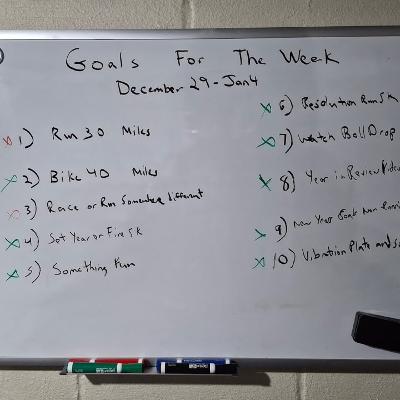 Goals For The Week
December 29-Jan4
X 1) Run 30 Miles
X 2) Bike 40 Miles
X 3) Race or Run Somewhere different
X 4) Sot Year or Fire 5k
X 5) Something Fun
X 6) Resolution Run 5k
X 7) Watch Ball Drop
X 8) Year in Review Video
X 9) New Year
X 10) Vibration Plate and